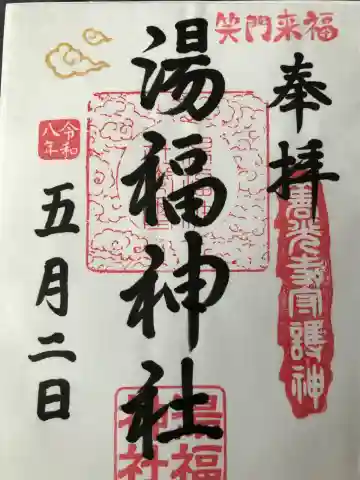 笑門来福
奉拝
善光寺守護神
湯福神社
湯福神社
令和八年
五月二日